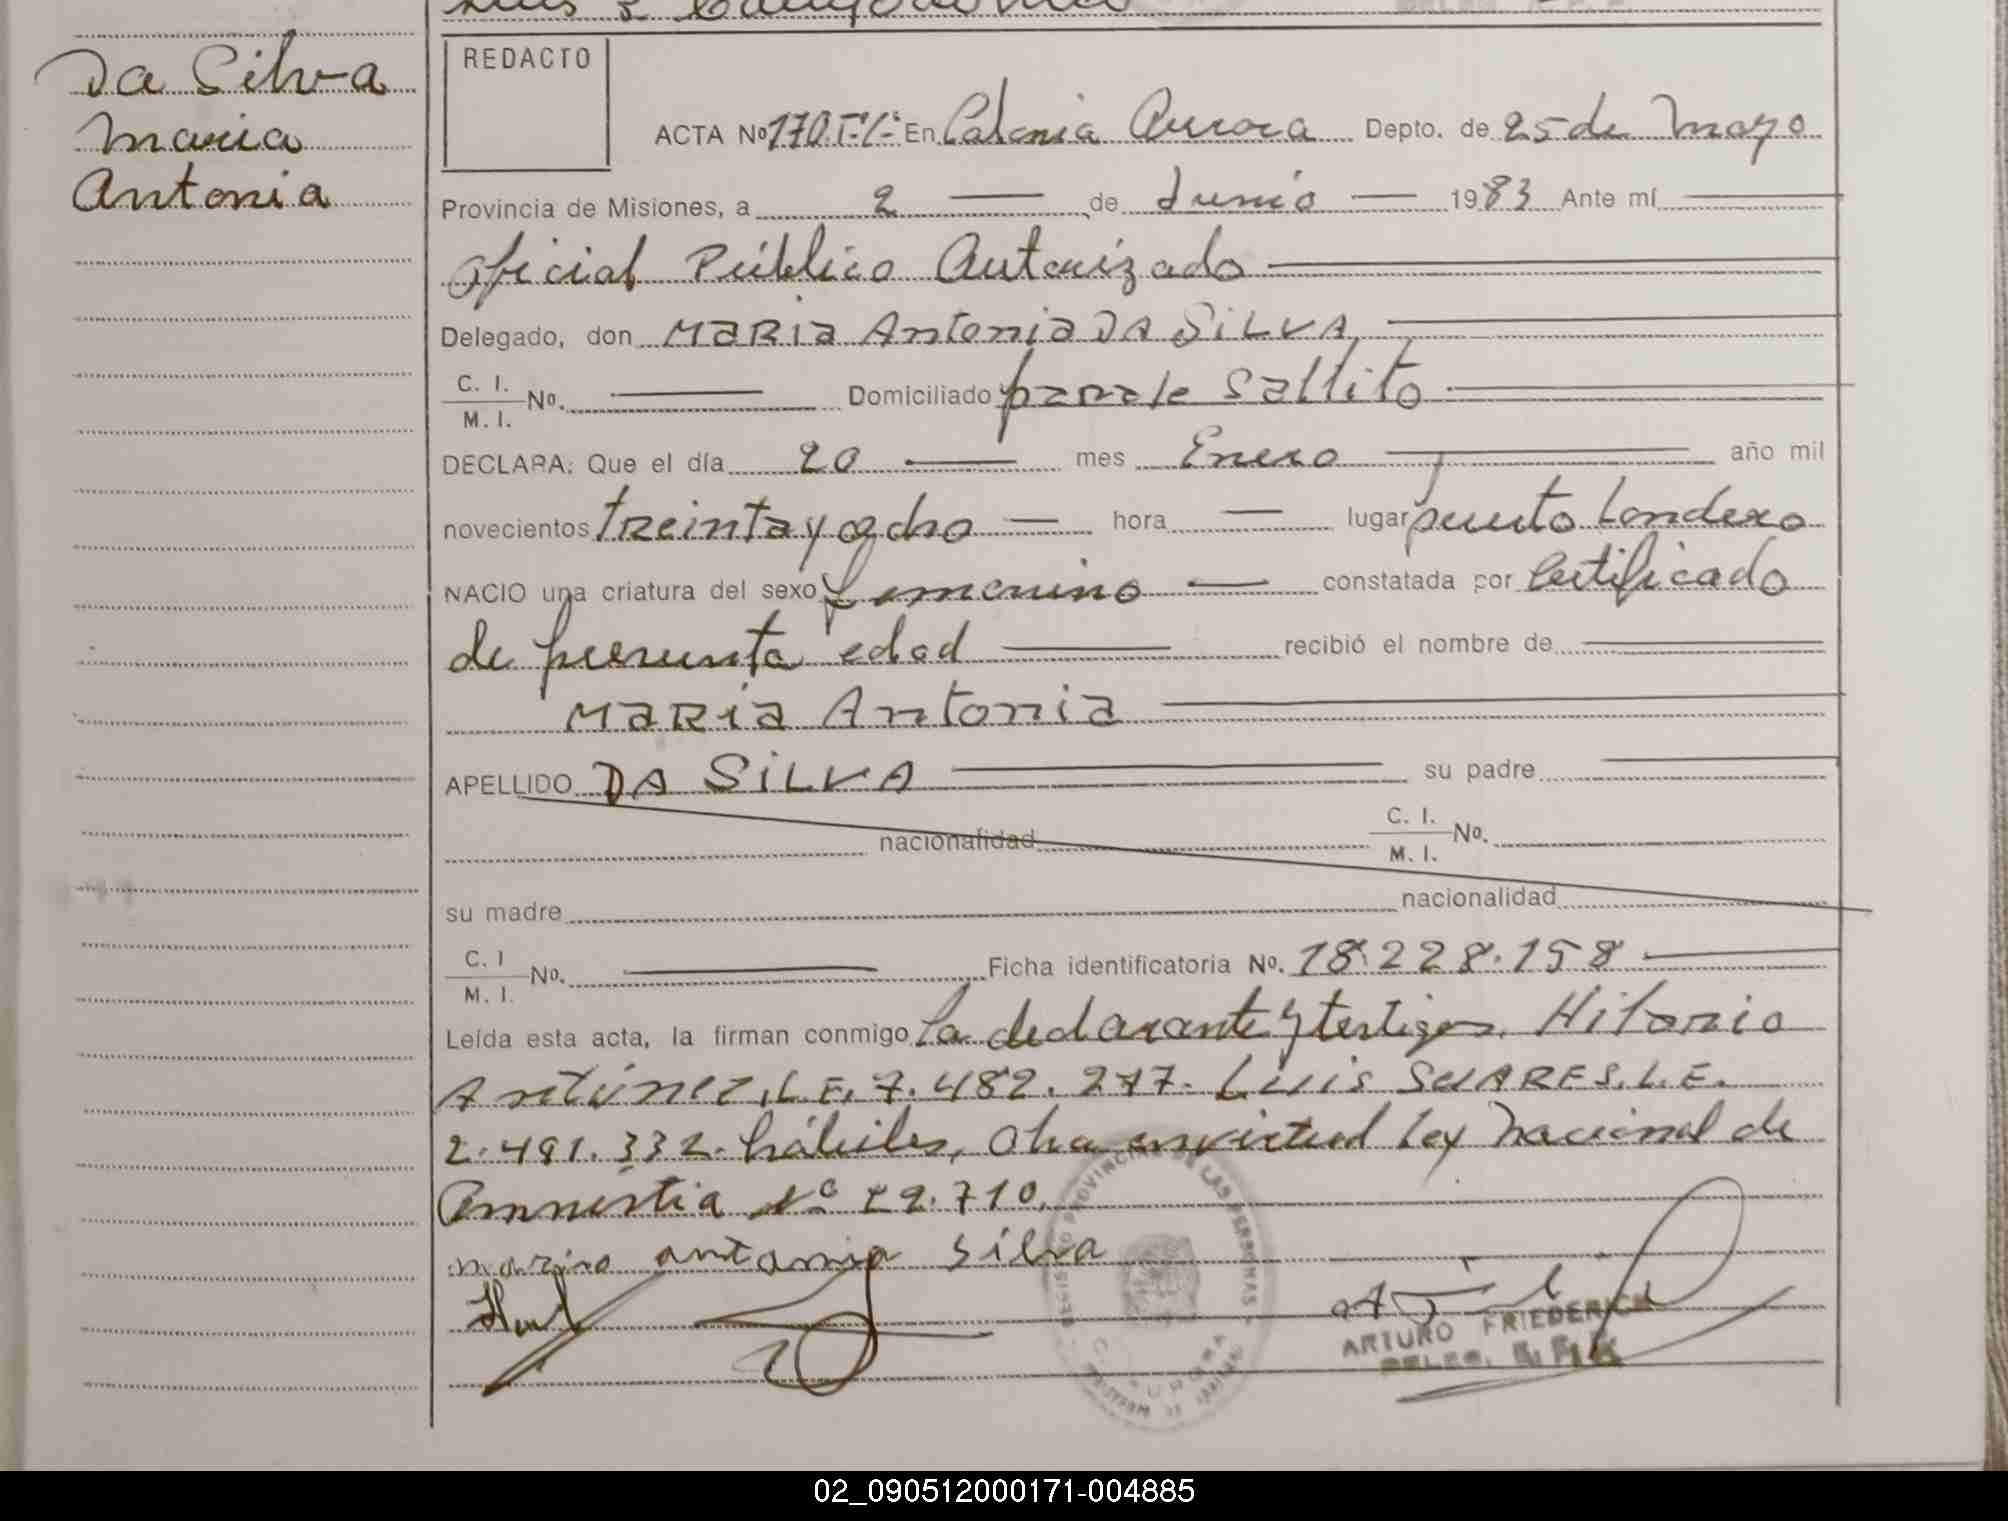 Da Silva
Maria
Antonia
REDACTO
ACTA Nº 170. Tº 1º En Colonia Aurora Depto. de 25 de Mayo
Provincia de Misiones, a 2 de Junio 1983 Ante mí
Oficial Público Autorizado
Delegado, don MaRia Antonia DA SiLVA,
C. I.
M. I. Nº. Domiciliado paraje Saltito
DECLARA: Que el día 20 mes Enero año mil
novecientos treinta y ocho hora lugar puerto Londero
NACIO una criatura del sexo femenino constatada por Certificado
de presunta edad recibió el nombre de
MaRia Antonia
APELLIDO DA SiLVA su padre
nacionalidad C. I.
M. I. Nº.
su madre nacionalidad
C. I
M. I. Nº. Ficha identificatoria Nº. 18.228.158
Leída esta acta, la firman conmigo La declarante y testigos. Hilario
Antúnez, L.E. 7.482.277. Luis SUARES. L.E.
2.491.332. hábiles, Oha en virtud Ley Nacional de
Amnistia Nº 22.710.
maria antonia silva
REGISTRO PROVINCIAL DE LAS PERSONAS
ARTURO FRIEDERICH
02_090512000171-004885